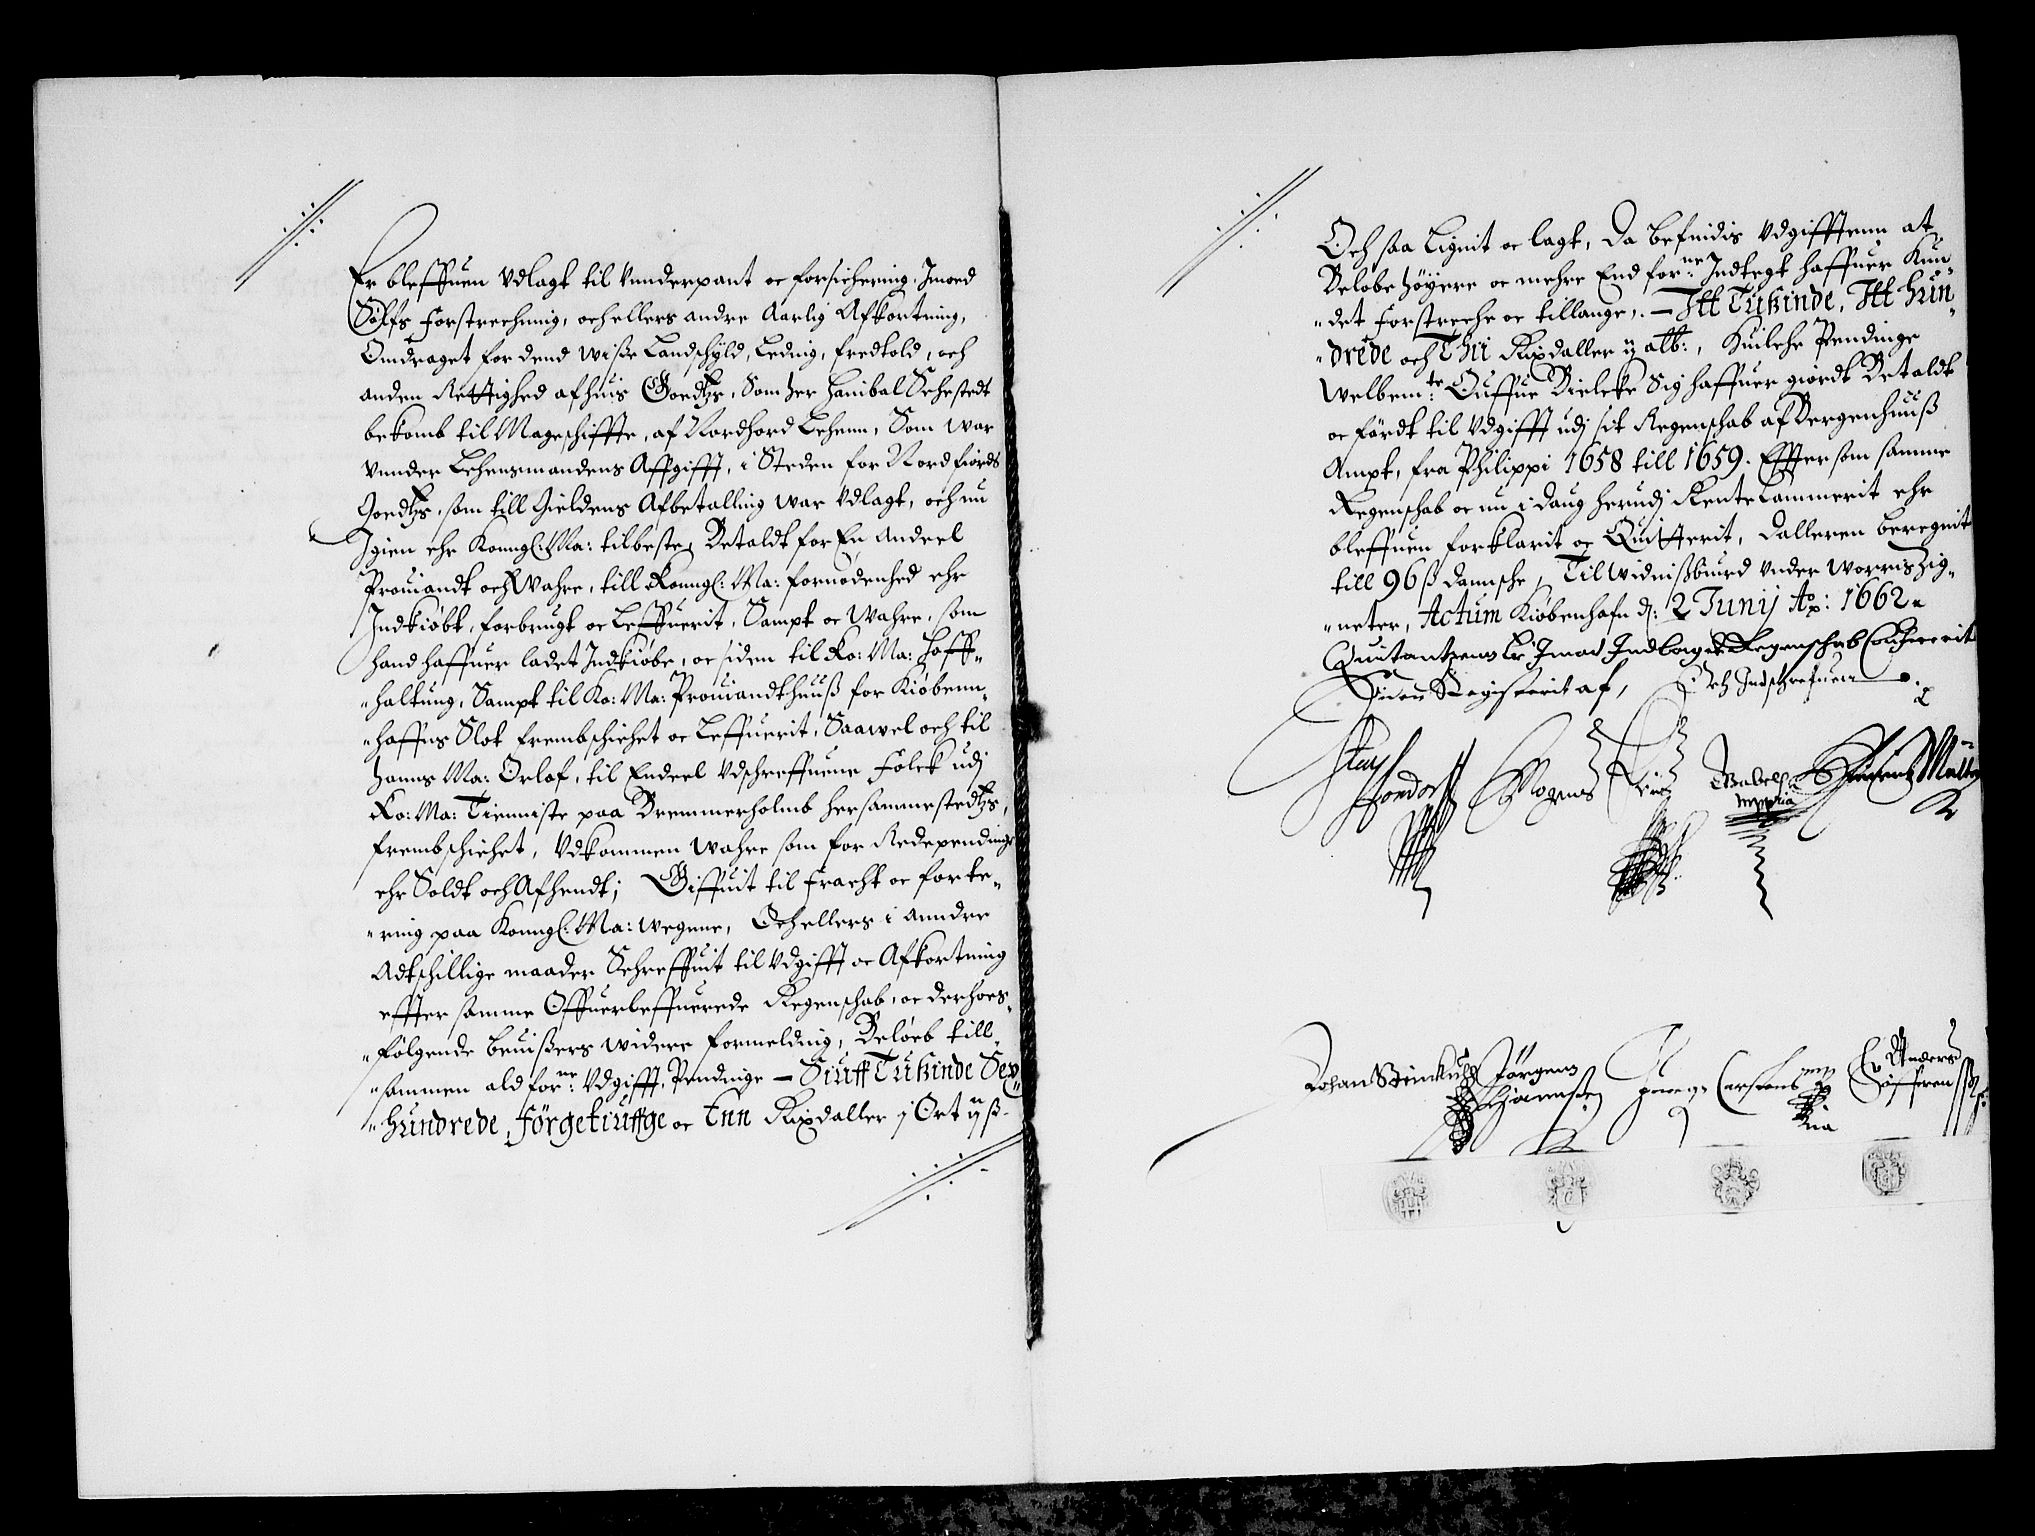 Er bleffuen Vdlagt til Vnderpant oc forsichering, Jmod
Sølfs forstrechning, och ellers andre Aarlig Afkortning,
Omdraget for dend wiße Landschyld, Leding, fredtold, och
anden Rettighed af huis Goedtzs, Som her Hanibal Sehestedt
bekomb til Mageschiffte, af Nordhord Lehenn, Som war
Vnnder Lehensmandens Affgifft, i Steden for Nordfiords
Goedtzs, som till Gieldens Afbetalling war Vdlagt, och nu
Igien ehr Konngl: Ma: tilbeste, Betaldt for En Andeel
Prouiandt och Wahre, till Konngl: Ma: fornødenhed ehr
Indkiøbt, forbrugt oc Leffuerit, Sampt oc Wahre, som
hand haffuer ladet Indkiøbe, oc siden til Ko: Ma: Hoff-
-haltung, Sampt til Ko: Ma: Prouiandthuuß for Kiøbenn-
-haffns Slot frembschichet oc Leffuerit, Saawel och til
hanns Ma: Orlof, til Endeel Vdschreffuene Folck udj
Ko: Ma: Tienniste paa Bremmerholmb hersammestedtzs,
frembschichet, Vdkommen Wahre som for Redependinge
ehr Soldt och Afhendt; Giffuit til fracht oc forte-
-ring paa Konngl: Ma: wegenne, Och ellers i anndre
Adtschillige maader Schreffuit til Vdgifft oc Afkortning
effter samme Offuerleffuerede Regenschab, oc derhoes-
-følgende beuißers widere formelding, Beløeb till-
-sammen ald forne: Vdgifft, Pendinge – Siuff Tußinde Sex
-hundrede,førgetiuffge oc Enn Rixdaller j Ort ij ß.
Och saa Lignit oc lagt, Da befindis Vdgifftenn at
Beløbe høyere oc mehre End forne: Indtegt haffuer Kun-
-det forstreche oc tillange, – Itt Tußinde, Itt hun-
-drede och Thii Rixdaller ij alb:, Huilche Pendinge
Welbemte: Ouffue Bielcke Sig haffuer giordt Betaldt
oc ført til Vdgifft udj sit Regenschab af Bergenhuuß
Ampt, fra Philippi 1658 till 1659. Effter som samme
Regenschab oc nu i daug herudj Rente Cammerit ehr
bleffuen forklarit oc Quitterit, Dalleren beregnit
till 96 ß dannsche, Til Widnißburd Vnder Worris Zig-
-neter, Actum Kiøbenhafn d: 2 Junij Ao: 1662.
Quitantzens Er Jmod Indlagde Regenschab Confererit
Siden Registerit af, Och Indschrefuen
Mogens
mppria
Müller
Johan Steinkuhl
Jørgenn
Hannsen
Carstens
mpp
ria
Anders
Søffrensen